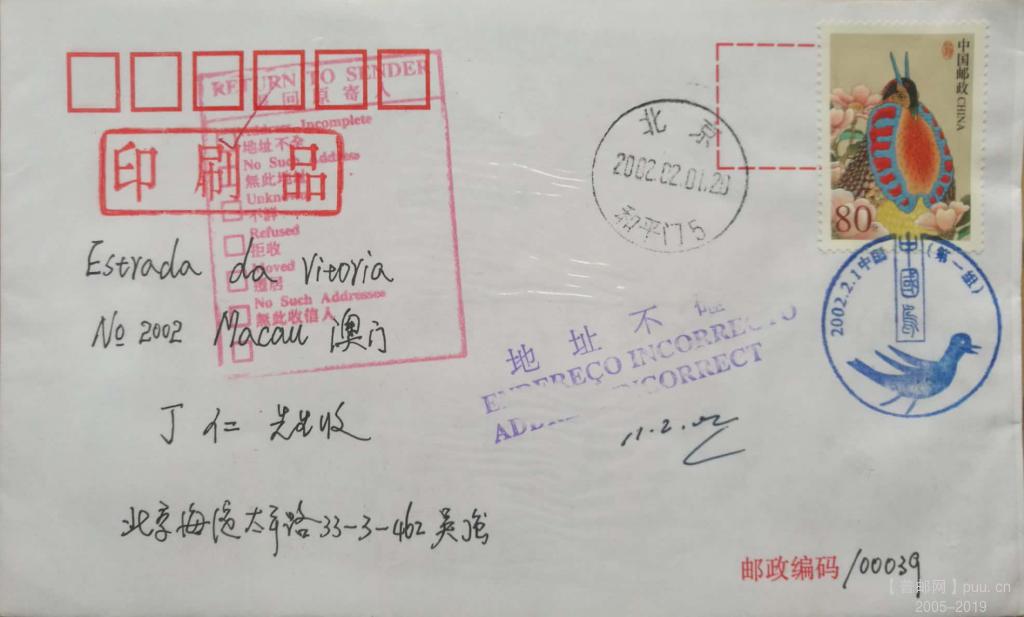 RETURN TO SENDER
退回原寄人
Address Incomplete
地址不全
No Such Address
無此地址
Unknown
不詳
Refused
拒收
Moved
遷居
No Such Addressee
無此收信人
印刷品
Estrada da Vitoria
No 2002 Macau 澳门
丁仁 先生收
北京海淀太平路33-3-462 吴强
北京
2002.02.01.20
和平门 5
中国邮政 CHINA
80
2002.2.1 中国
(第一组)
中国鸟
地址不
ENDEREÇO INCORRECTO
ADDRESS INCORRECT
11.2.02
邮政编码 100039
【普邮网】puu.cn
2005-2019